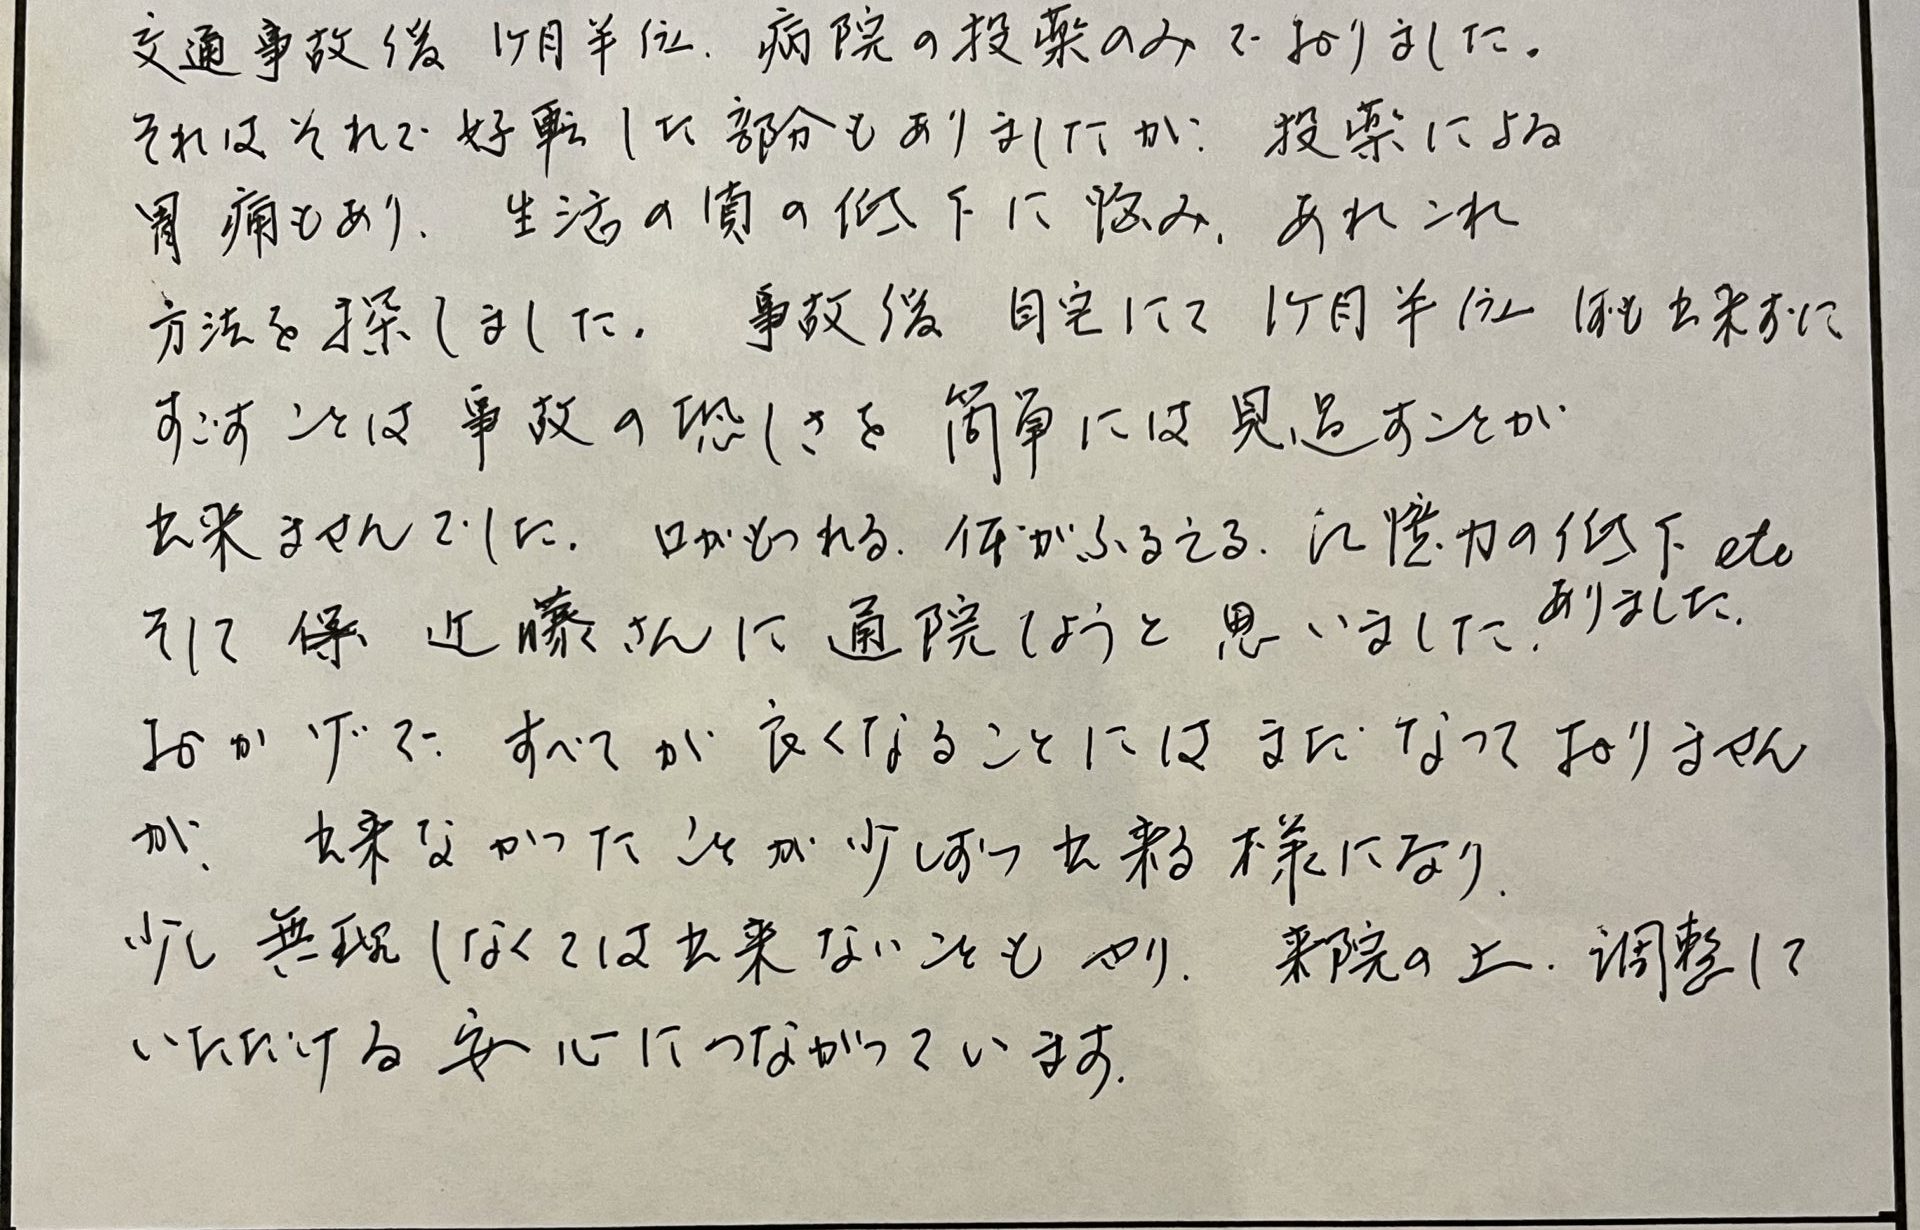 交通事故後 1ケ月半位、病院の投薬のみでおりました。
それはそれで好転した部分もありましたが、投薬による
胃痛もあり、生活の質の低下に悩み、あれこれ
方法を探しました。 事故後 自宅にて 1ケ月半位 何も出来ずに
すごすことは事故の恐しさを簡単には見過すことが
出来ませんでした。口がもつれる、体がふるえる、記憶力の低下 etc
ありました。
そして 近藤さんに通院しようと思いました。
おかげで、すべてが良くなることにはまだなっておりません
が、出来なかったことが少しずつ出来る様になり、
少し無理しなくては出来ないこともやり、来院の上、調整して
いただける安心につながっています。